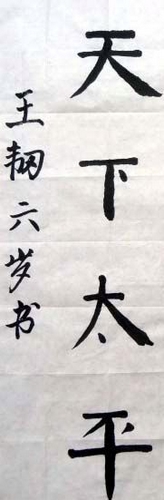 天下太平
王韧六岁书